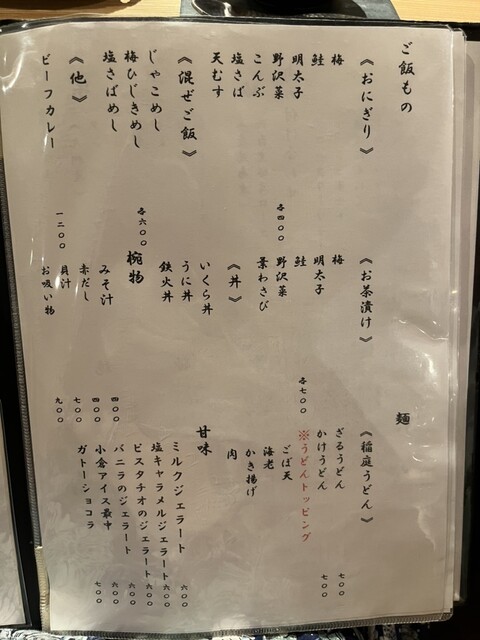 ご飯もの
《おにぎり》
梅
鮭
明太子
野沢菜 各四〇〇
こんぶ
塩さば
天むす
《混ぜご飯》
じゃこめし 各六〇〇
梅ひじきめし
塩さばめし
《他》
ビーフカレー 一二〇〇
《お茶漬け》
梅
明太子
鮭 各七〇〇
野沢菜
葉わさび
《丼》
いくら丼
うに丼
鉄火丼
椀物
みそ汁 四〇〇
赤だし 四〇〇
貝汁 七〇〇
お吸い物 九〇〇
麺
《稲庭うどん》
ざるうどん 七〇〇
かけうどん 七〇〇
※うどんトッピング
ごぼ天
海老
かき揚げ
肉
甘味
ミルクジェラート 六〇〇
塩キャラメルジェラート 六〇〇
ピスタチオのジェラート 六〇〇
バニラのジェラート 六〇〇
小倉アイス最中 六〇〇
ガトーショコラ 七〇〇